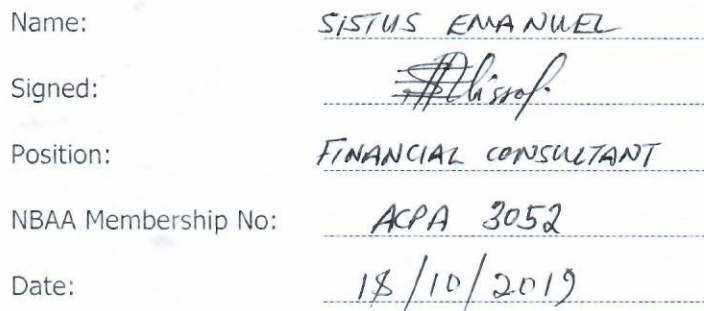 Name: SISTUS EMANUEL
Signed:
Position: FINANCIAL CONSULTANT
NBAA Membership No: ACPA 3052
Date: 18/10/2019